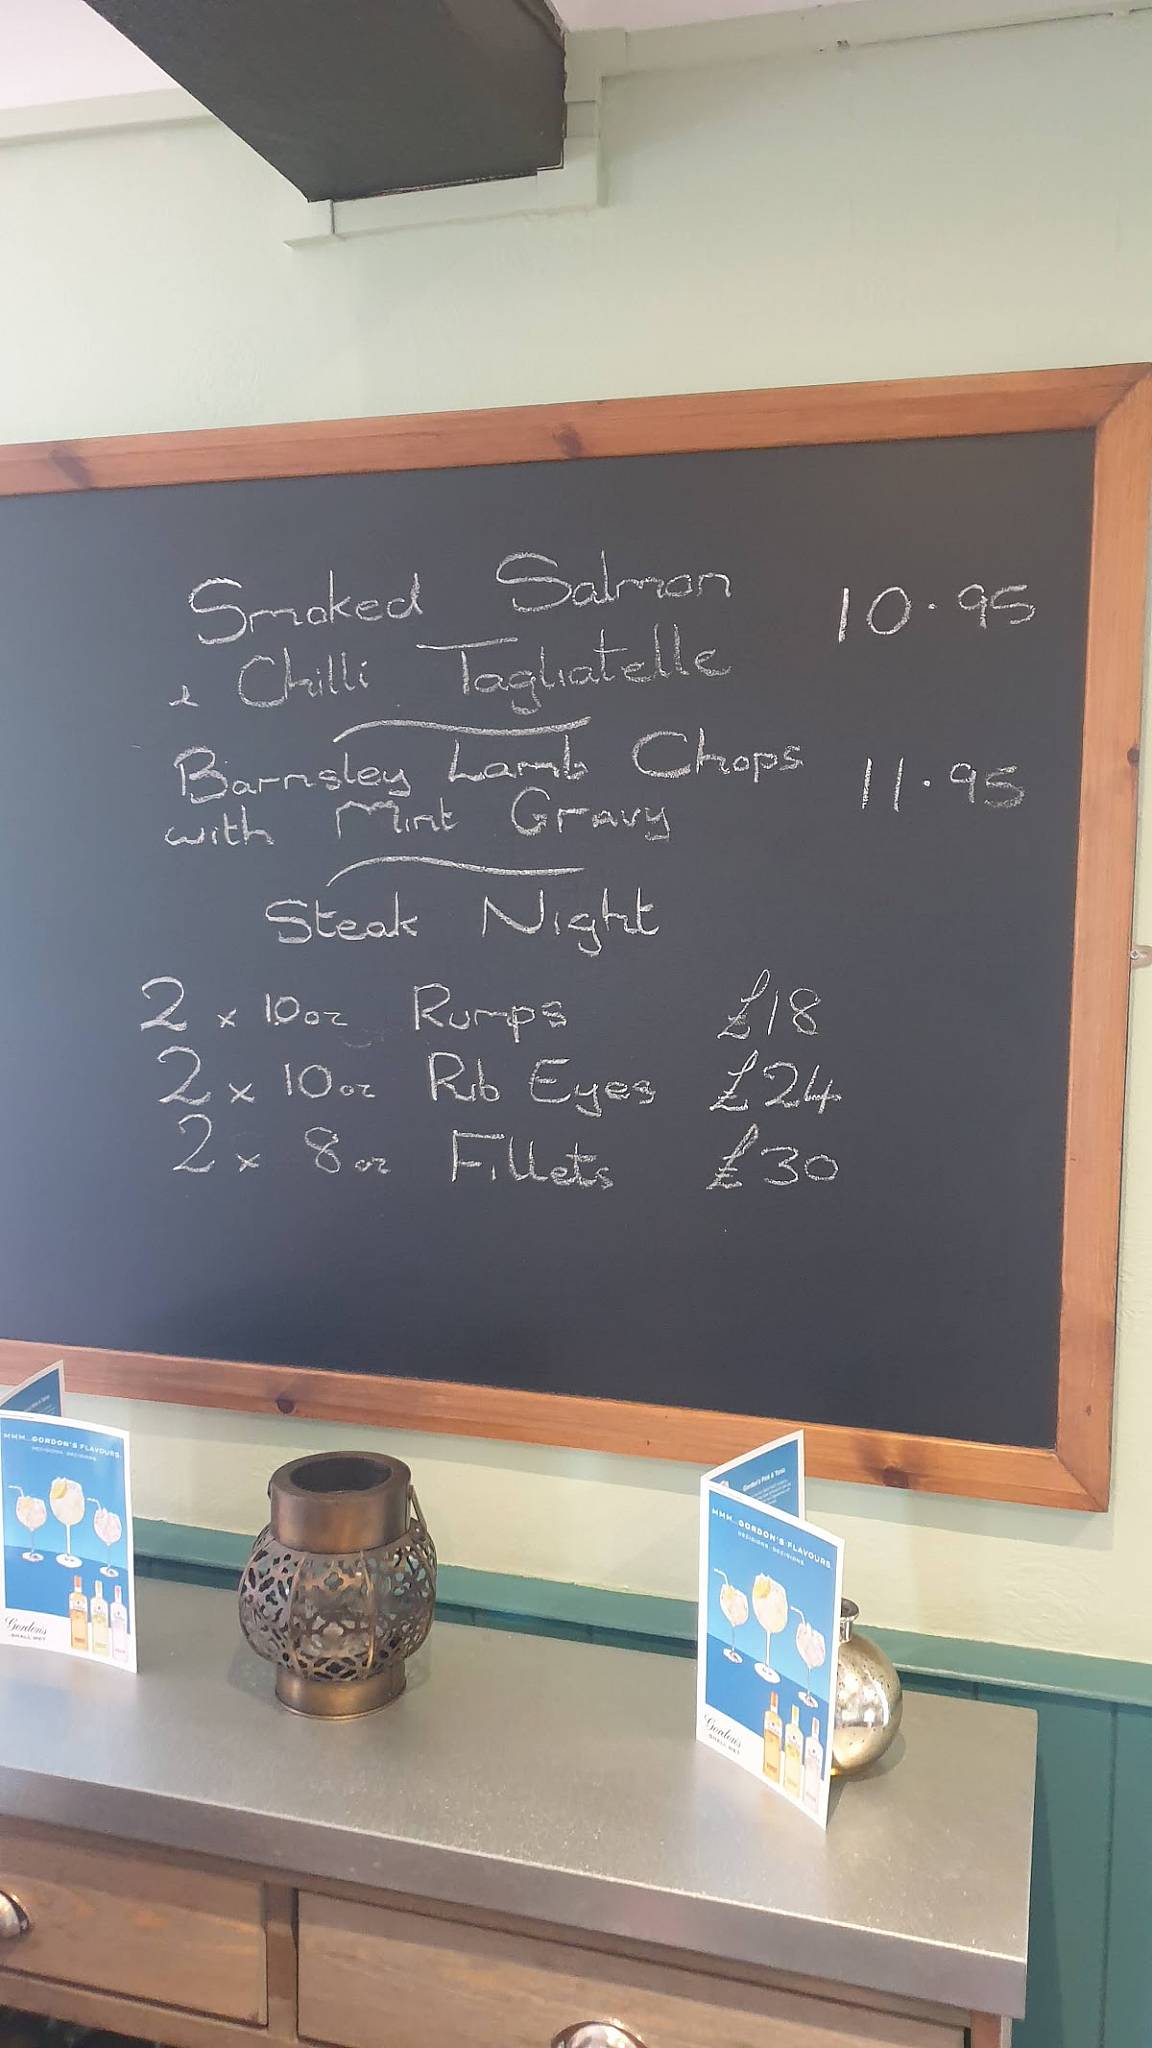 Smoked Salmon 10.95
& Chilli Tagliatelle
Barnsley Lamb Chops 11.95
with Mint Gravy
Steak Night
2 x 10oz Rumps £18
2 x 10oz Rib Eyes £24
2 x 8oz Fillets £30
MMM...GORDON'S FLAVOURS.
DECISIONS, DECISIONS.
Gordon's
SHALL WE?
Gordon's Pink & Tonic
MMM...GORDON'S FLAVOURS.
DECISIONS, DECISIONS.
Gordon's
SHALL WE?